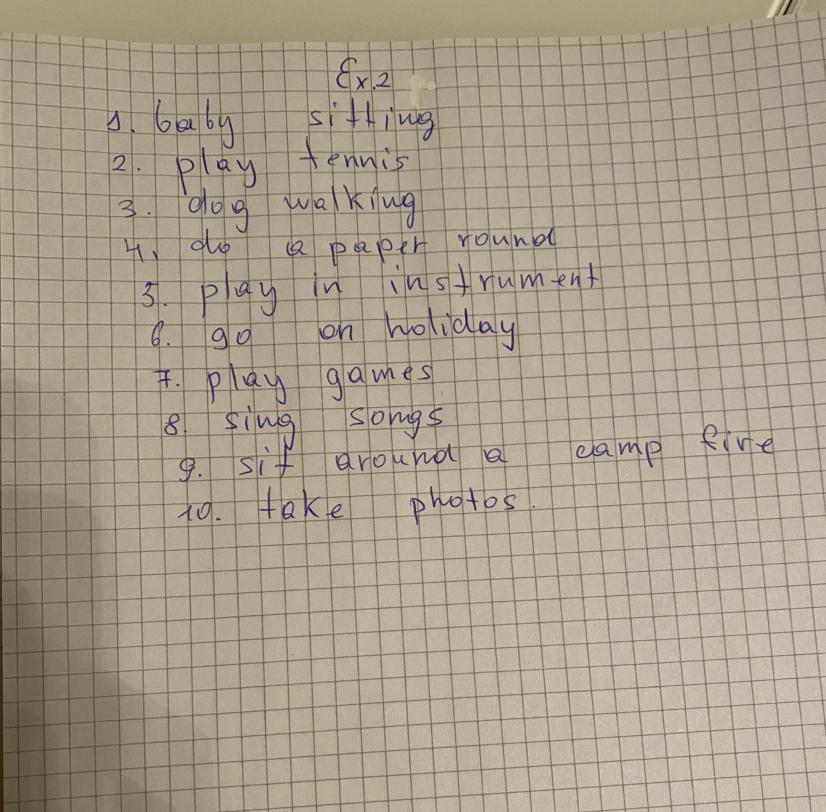 Ex.2
1. baby sitting
2. play tennis
3. dog walking
4. do a paper round
5. play in instrument
6. go on holiday
7. play games
8. sing songs
9. sit around a camp fire
10. take photos.